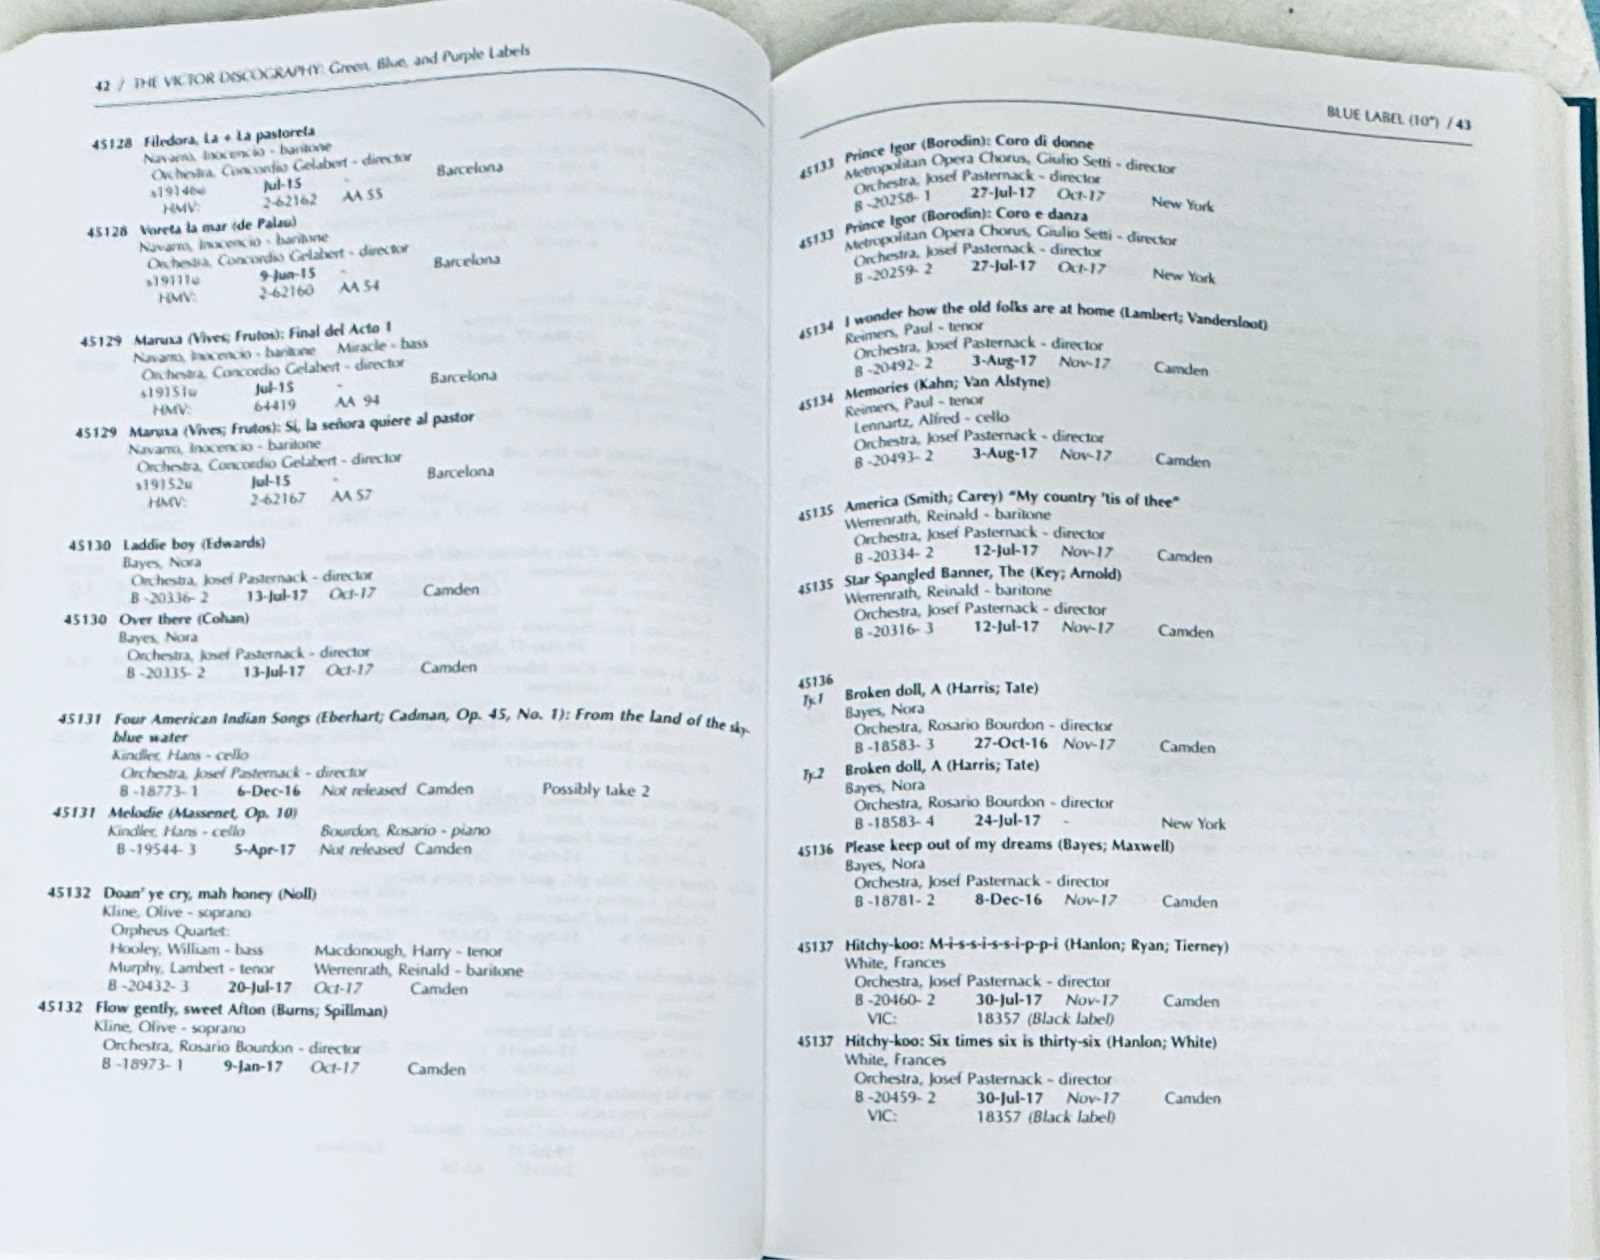 42 / THE VICTOR DISCOGRAPHY: Green, Blue, and Purple Labels
45128 Filedora, La + La pastoreta
Navarro, Inocencio - baritone
Orchestra, Concordio Gelabert - director
s19146u Jul-15 - Barcelona
HMV: 2-62162 AA 55
45128 Voreta la mar (de Palau)
Navarro, Inocencio - baritone
Orchestra, Concordio Gelabert - director
s19111u 9-Jun-15 - Barcelona
HMV: 2-62160 AA 54
45129 Maruxa (Vives; Frutos): Final del Acto 1
Navarro, Inocencio - baritone Miracle - bass
Orchestra, Concordio Gelabert - director
s19151u Jul-15 - Barcelona
HMV: 64419 AA 94
45129 Maruxa (Vives; Frutos): Si, la señora quiere al pastor
Navarro, Inocencio - baritone
Orchestra, Concordio Gelabert - director
s19152u Jul-15 - Barcelona
HMV: 2-62167 AA 57
45130 Laddie boy (Edwards)
Bayes, Nora
Orchestra, Josef Pasternack - director
B -20336- 2 13-Jul-17 Oct-17 Camden
45130 Over there (Cohan)
Bayes, Nora
Orchestra, Josef Pasternack - director
B -20335- 2 13-Jul-17 Oct-17 Camden
45131 Four American Indian Songs (Eberhart; Cadman, Op. 45, No. 1): From the land of the sky-
blue water
Kindler, Hans - cello
Orchestra, Josef Pasternack - director
B -18773- 1 6-Dec-16 Not released Camden Possibly take 2
45131 Melodie (Massenet, Op. 10)
Kindler, Hans - cello Bourdon, Rosario - piano
B -19544- 3 5-Apr-17 Not released Camden
45132 Doan' ye cry, mah honey (Noll)
Kline, Olive - soprano
Orpheus Quartet:
Hooley, William - bass Macdonough, Harry - tenor
Murphy, Lambert - tenor Werrenrath, Reinald - baritone
B -20432- 3 20-Jul-17 Oct-17 Camden
45132 Flow gently, sweet Afton (Burns; Spillman)
Kline, Olive - soprano
Orchestra, Rosario Bourdon - director
B -18973- 1 9-Jan-17 Oct-17 Camden
BLUE LABEL (10") / 43
45133 Prince Igor (Borodin): Coro di donne
Metropolitan Opera Chorus, Giulio Setti - director
Orchestra, Josef Pasternack - director
B -20258- 1 27-Jul-17 Oct-17 New York
45133 Prince Igor (Borodin): Coro e danza
Metropolitan Opera Chorus, Giulio Setti - director
Orchestra, Josef Pasternack - director
B -20259- 2 27-Jul-17 Oct-17 New York
45134 I wonder how the old folks are at home (Lambert; Vandersloot)
Reimers, Paul - tenor
Orchestra, Josef Pasternack - director
B -20492- 2 3-Aug-17 Nov-17 Camden
45134 Memories (Kahn; Van Alstyne)
Reimers, Paul - tenor
Lennartz, Alfred - cello
Orchestra, Josef Pasternack - director
B -20493- 2 3-Aug-17 Nov-17 Camden
45135 America (Smith; Carey) "My country 'tis of thee"
Werrenrath, Reinald - baritone
Orchestra, Josef Pasternack - director
B -20334- 2 12-Jul-17 Nov-17 Camden
45135 Star Spangled Banner, The (Key; Arnold)
Werrenrath, Reinald - baritone
Orchestra, Josef Pasternack - director
B -20316- 3 12-Jul-17 Nov-17 Camden
45136
Ty.1 Broken doll, A (Harris; Tate)
Bayes, Nora
Orchestra, Rosario Bourdon - director
B -18583- 3 27-Oct-16 Nov-17 Camden
Ty.2 Broken doll, A (Harris; Tate)
Bayes, Nora
Orchestra, Rosario Bourdon - director
B -18583- 4 24-Jul-17 - New York
45136 Please keep out of my dreams (Bayes; Maxwell)
Bayes, Nora
Orchestra, Josef Pasternack - director
B -18781- 2 8-Dec-16 Nov-17 Camden
45137 Hitchy-koo: M-i-s-s-i-s-s-i-p-p-i (Hanlon; Ryan; Tierney)
White, Frances
Orchestra, Josef Pasternack - director
B -20460- 2 30-Jul-17 Nov-17 Camden
VIC: 18357 (Black label)
45137 Hitchy-koo: Six times six is thirty-six (Hanlon; White)
White, Frances
Orchestra, Josef Pasternack - director
B -20459- 2 30-Jul-17 Nov-17 Camden
VIC: 18357 (Black label)